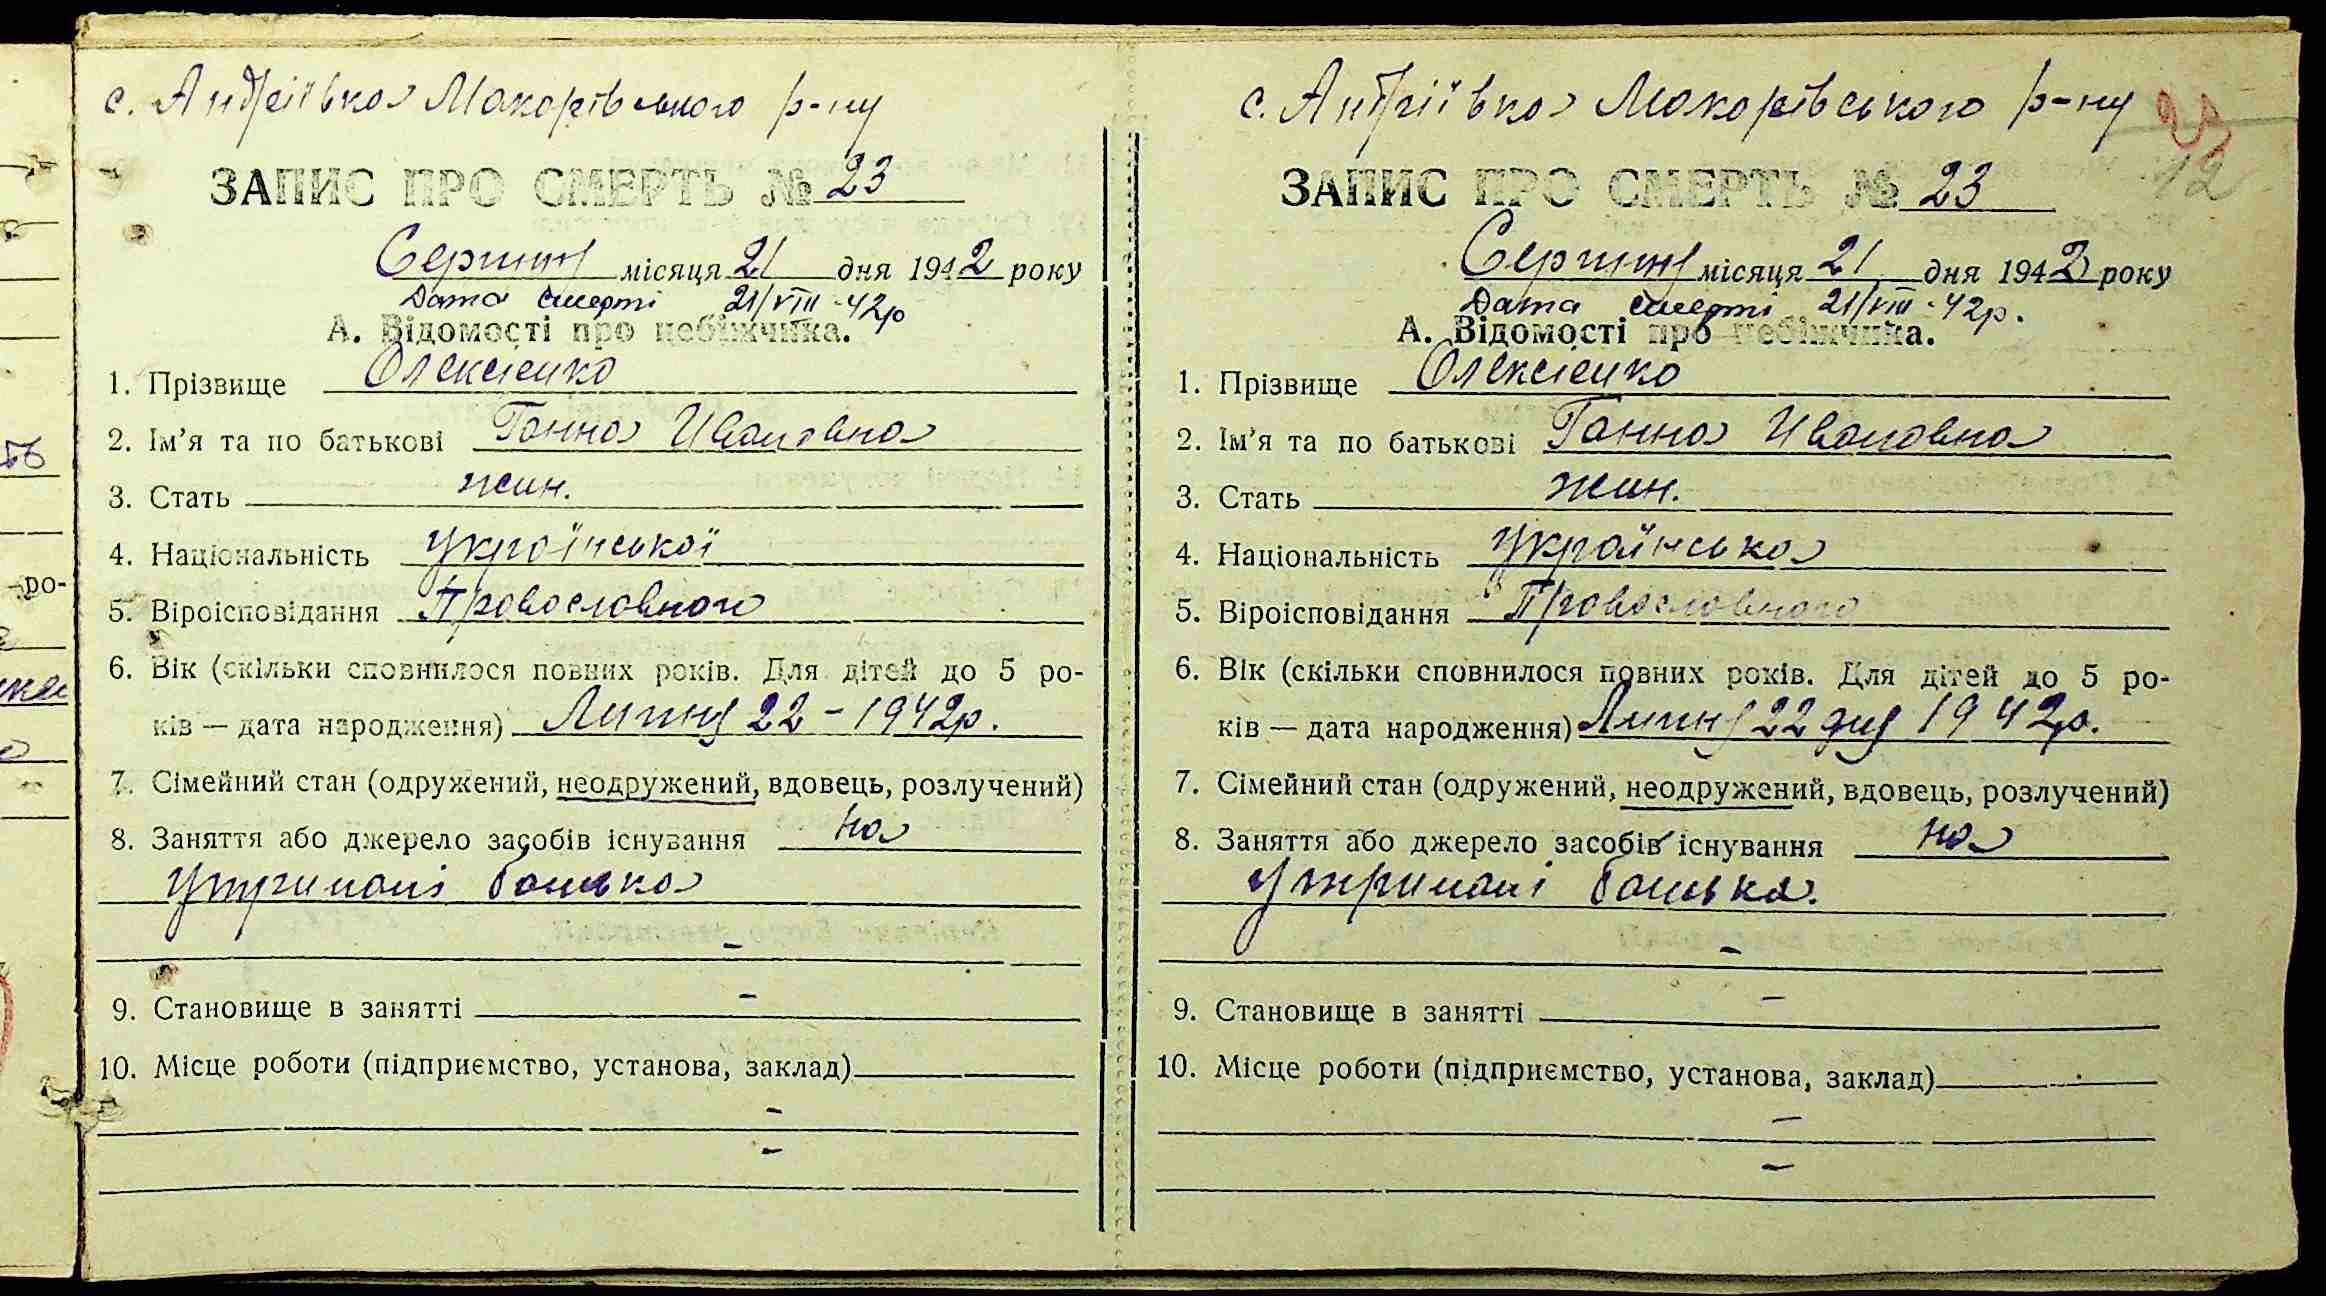 с. Андріївка Макарівського р-ну
ЗАПИС ПРО СМЕРТЬ № 23
Серпня місяця 21 дня 1942 року
Дата смерті 21/VIII-42р
А. Відомості про небіжчика.
1. Прізвище Олексієнко
2. Ім'я та по батькові Ганна Ивановна
3. Стать жин.
4. Національність української
5. Віроісповідання Православного
6. Вік (скільки сповнилося повних років. Для дітей до 5 ро-
ків — дата народження) Липня 22 - 1942р.
7. Сімейний стан (одружений, неодружений, вдовець, розлучений)
8. Заняття або джерело засобів існування на
утримані батька
-
9. Становище в занятті -
10. Місце роботи (підприємство, установа, заклад)
-
-
с. Андріївка Макарівського р-ну
23
12
ЗАПИС ПРО СМЕРТЬ № 23
Серпня місяця 21 дня 1942 року
Дата смерті 21/VIII-42р.
А. Відомості про небіжчика.
1. Прізвище Олексієнко
2. Ім'я та по батькові Ганна Ивановна
3. Стать жин.
4. Національність українська
5. Віроісповідання Православного
6. Вік (скільки сповнилося повних років. Для дітей до 5 ро-
ків — дата народження) Липня 22 дня 1942р.
7. Сімейний стан (одружений, неодружений, вдовець, розлучений)
8. Заняття або джерело засобів існування на
утримані батька.
-
9. Становище в занятті -
10. Місце роботи (підприємство, установа, заклад)
-
-